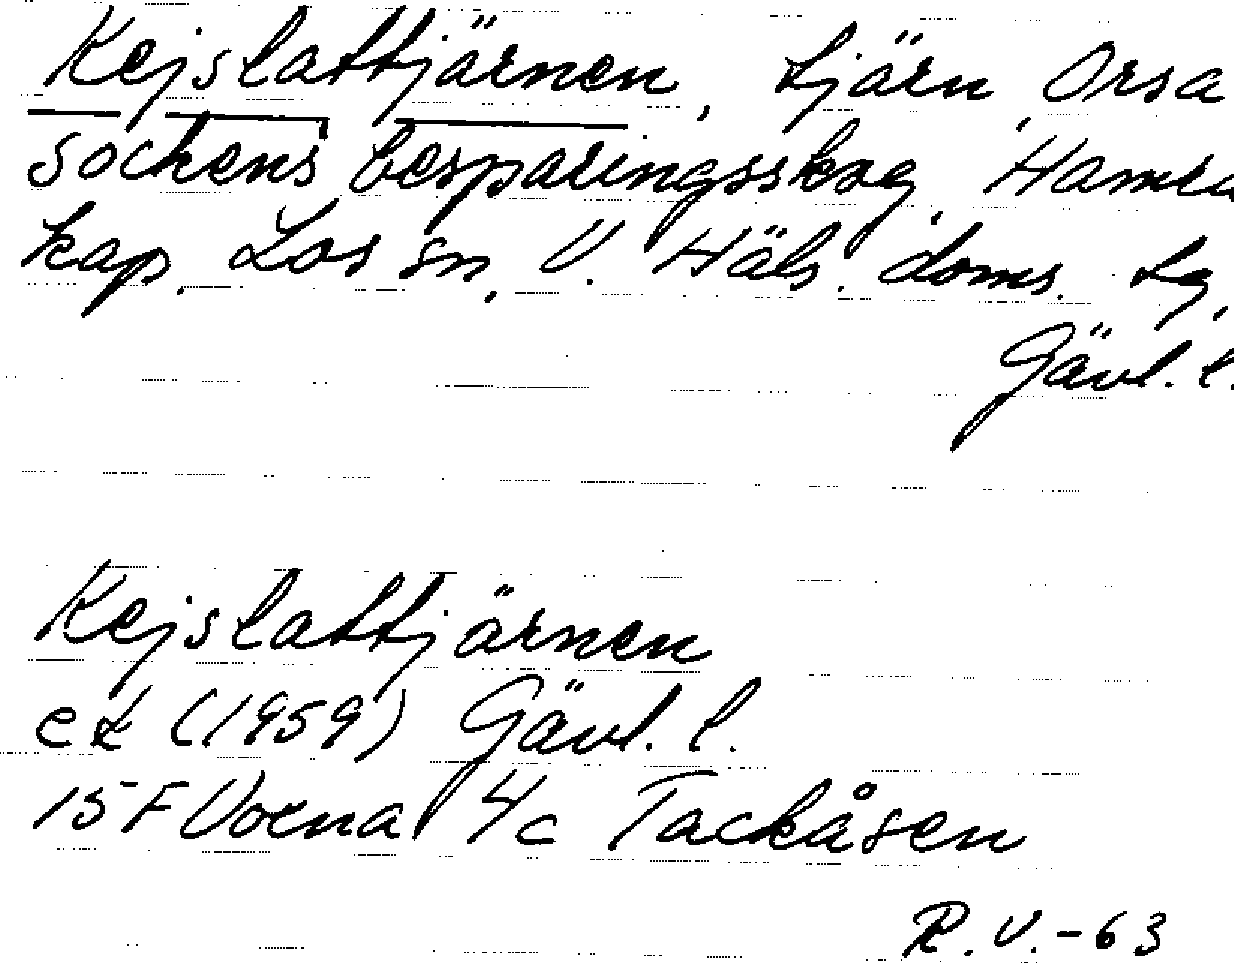 Kejslattjärnen, tjärn, Orsa
sockens besparingsskog, Hamra
kap, Los sn, V. Häls. doms. tg,
Gävl. l.
Kejslattjärnen
ek (1959) Gävl. l.
15 F Voxna 4c Tackåsen
R. V. - 63